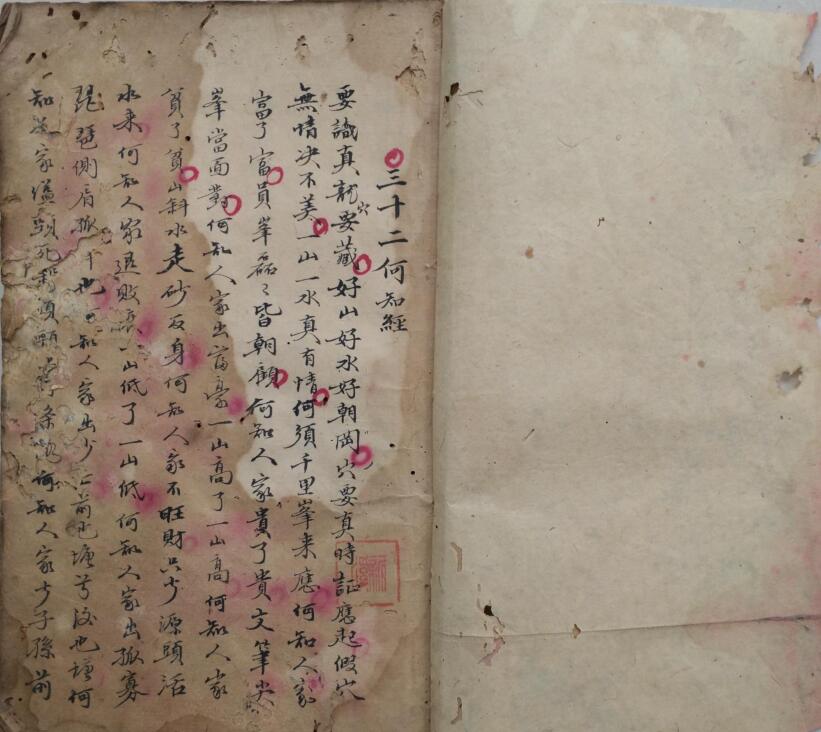 三十二何知經
要識真龍要藏穴好山好水好朝岡穴要真時証應起假穴
無情决不美一山一水真有情何須千里峯來應何知人家
富了富員峯磊〻皆朝顧何知人家貴了貴文筆尖
峯當面對何知人家出富豪一山高了一山高何知人家
貧了貧山斜水走砂反身何知人家不旺財只少源頭活
水来何知人家退敗一山低了一山低何知人家出孤寡
琵琶側肩孤知人家出少前也塘
知家死何知人家少子孫前